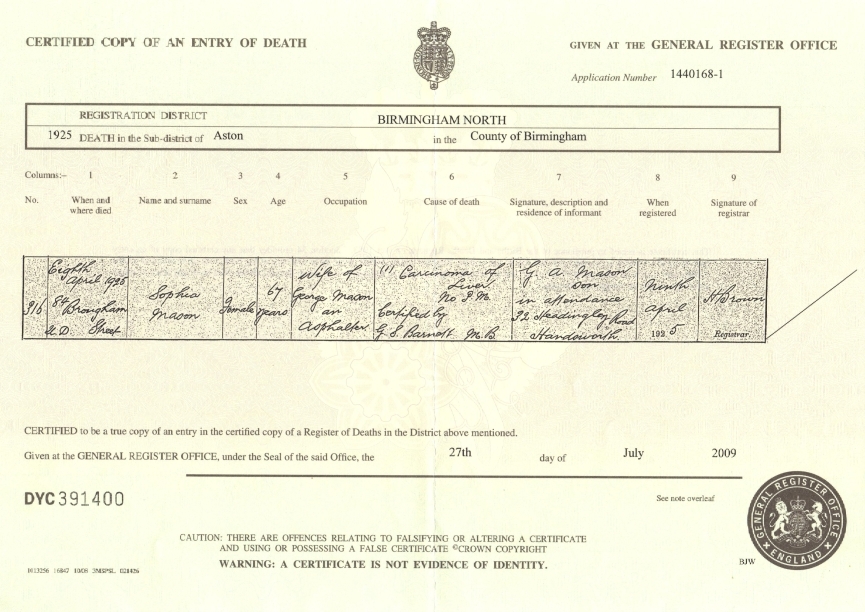 CERTIFIED COPY OF AN ENTRY OF DEATH
GIVEN AT THE GENERAL REGISTER OFFICE
Application Number 1440168-1
REGISTRATION DISTRICT BIRMINGHAM NORTH
1925 DEATH in the Sub-district of Aston in the County of Birmingham
Columns:- 1 2 3 4 5 6 7 8 9
No. When and where died Name and surname Sex Age Occupation Cause of death Signature, description and residence of informant When registered Signature of registrar
316
Eighth
April 1925
84 Brougham
Street
U.D.
Sophia
Mason
Female
67
years
Wife of
George Mason
an
Asphalter
(1) Carcinoma of
Liver
No P.M.
Certified by
G. S. Barnett M.B.
G. A. Mason
Son
in attendance
32 Headingley Road
Handsworth
Ninth
April
1925
H Brown
Registrar.
CERTIFIED to be a true copy of an entry in the certified copy of a Register of Deaths in the District above mentioned.
Given at the GENERAL REGISTER OFFICE, under the Seal of the said Office, the 27th day of July 2009
DYC 391400
See note overleaf
CAUTION: THERE ARE OFFENCES RELATING TO FALSIFYING OR ALTERING A CERTIFICATE
AND USING OR POSSESSING A FALSE CERTIFICATE ©CROWN COPYRIGHT
WARNING: A CERTIFICATE IS NOT EVIDENCE OF IDENTITY.
GENERAL REGISTER OFFICE
ENGLAND
BJW